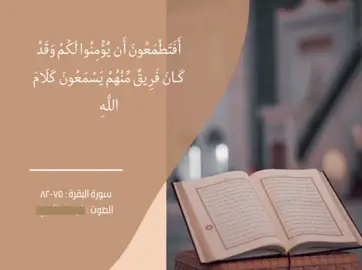 أَفَتَطْمَعُونَ أَن يُؤْمِنُوا لَكُمْ وَقَدْ
كَانَ فَرِيقٌ مِّنْهُمْ يَسْمَعُونَ كَلَامَ
اللَّهِ
سورة البقرة : ٧٥-٨٢
الصوت :